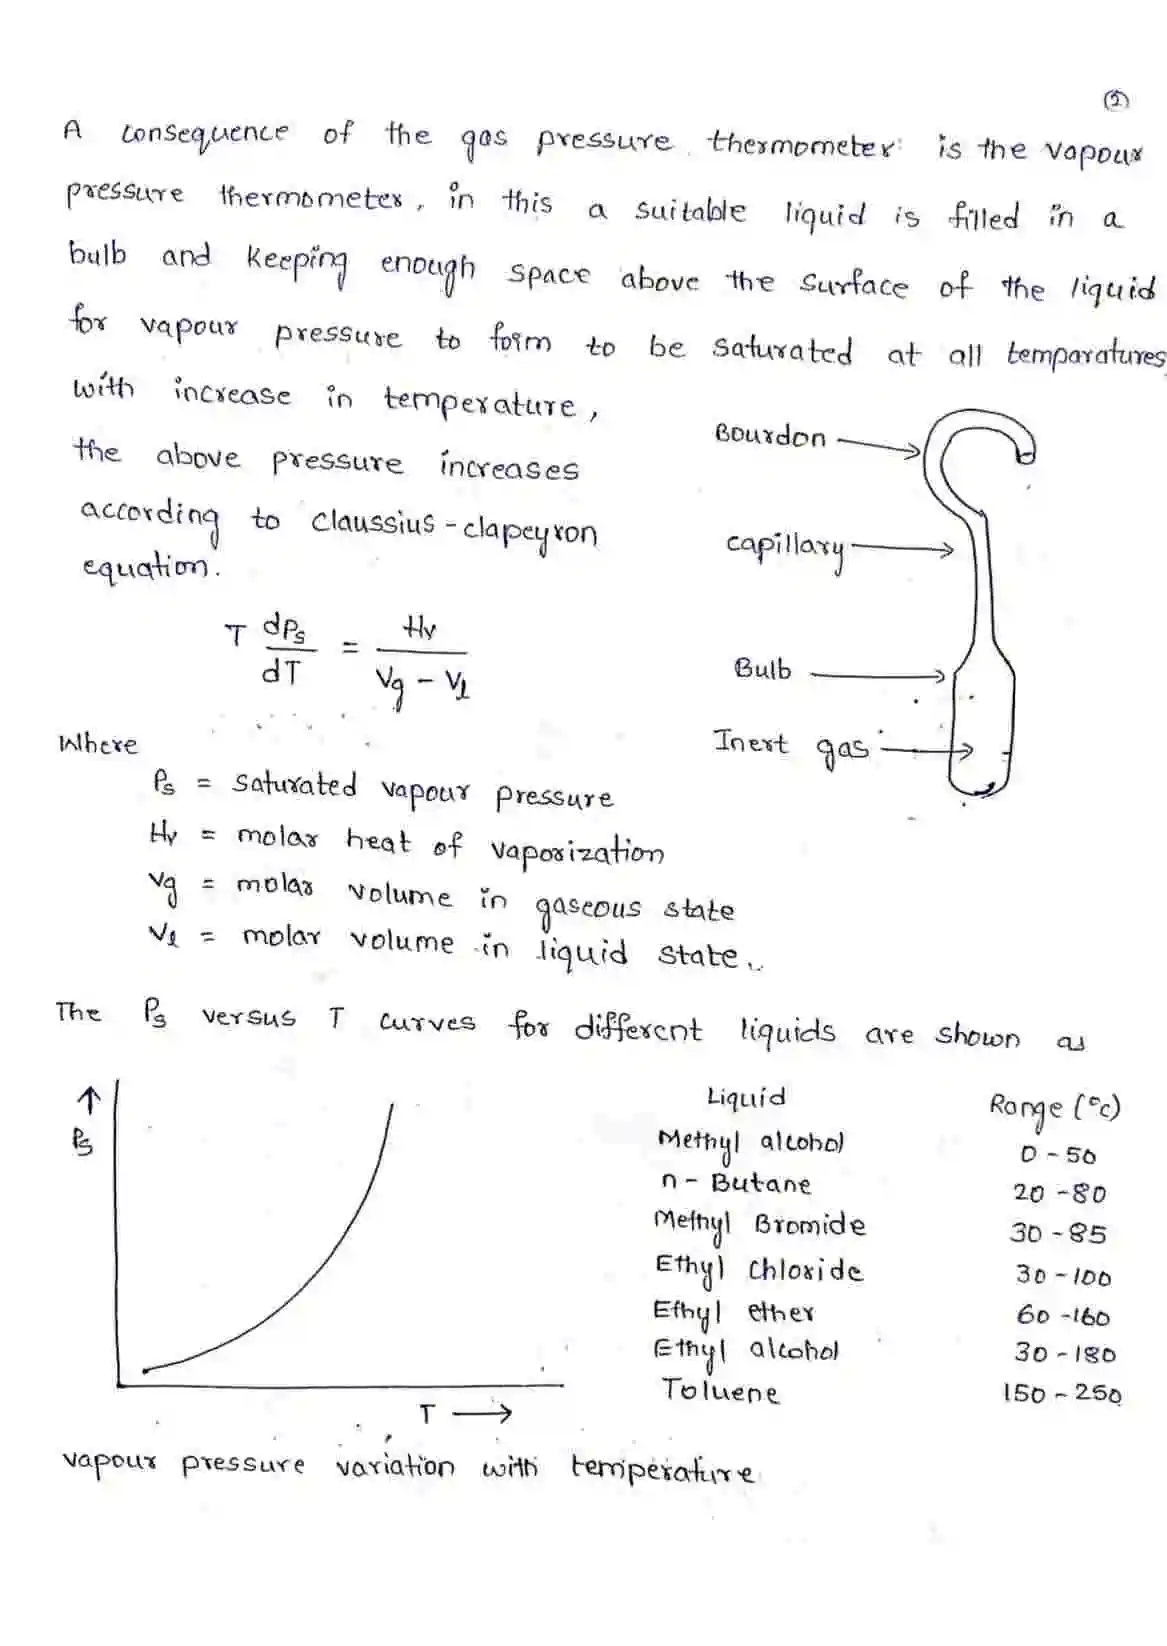 ②
A consequence of the gas pressure thermometer is the vapour
pressure thermometer, in this a suitable liquid is filled in a
bulb and keeping enough space above the surface of the liquid
for vapour pressure to form to be saturated at all temparatures,
with increase in temperature,
the above pressure increases
according to claussius - clapeyron
equation.
T dPs/dT = Hv/(Vg - Vl)
Bourdon
capillary
Bulb
Inert gas
Where
Ps = saturated vapour pressure
Hv = molar heat of vaporization
Vg = molar volume in gaseous state
Vl = molar volume in liquid state.
The Ps versus T curves for different liquids are shown as
↑
Ps
T →
Liquid Range (°c)
Methyl alcohol 0 - 50
n - Butane 20 - 80
Methyl Bromide 30 - 85
Ethyl chloride 30 - 100
Ethyl ether 60 - 160
Ethyl alcohol 30 - 180
Toluene 150 - 250
vapour pressure variation with temperature